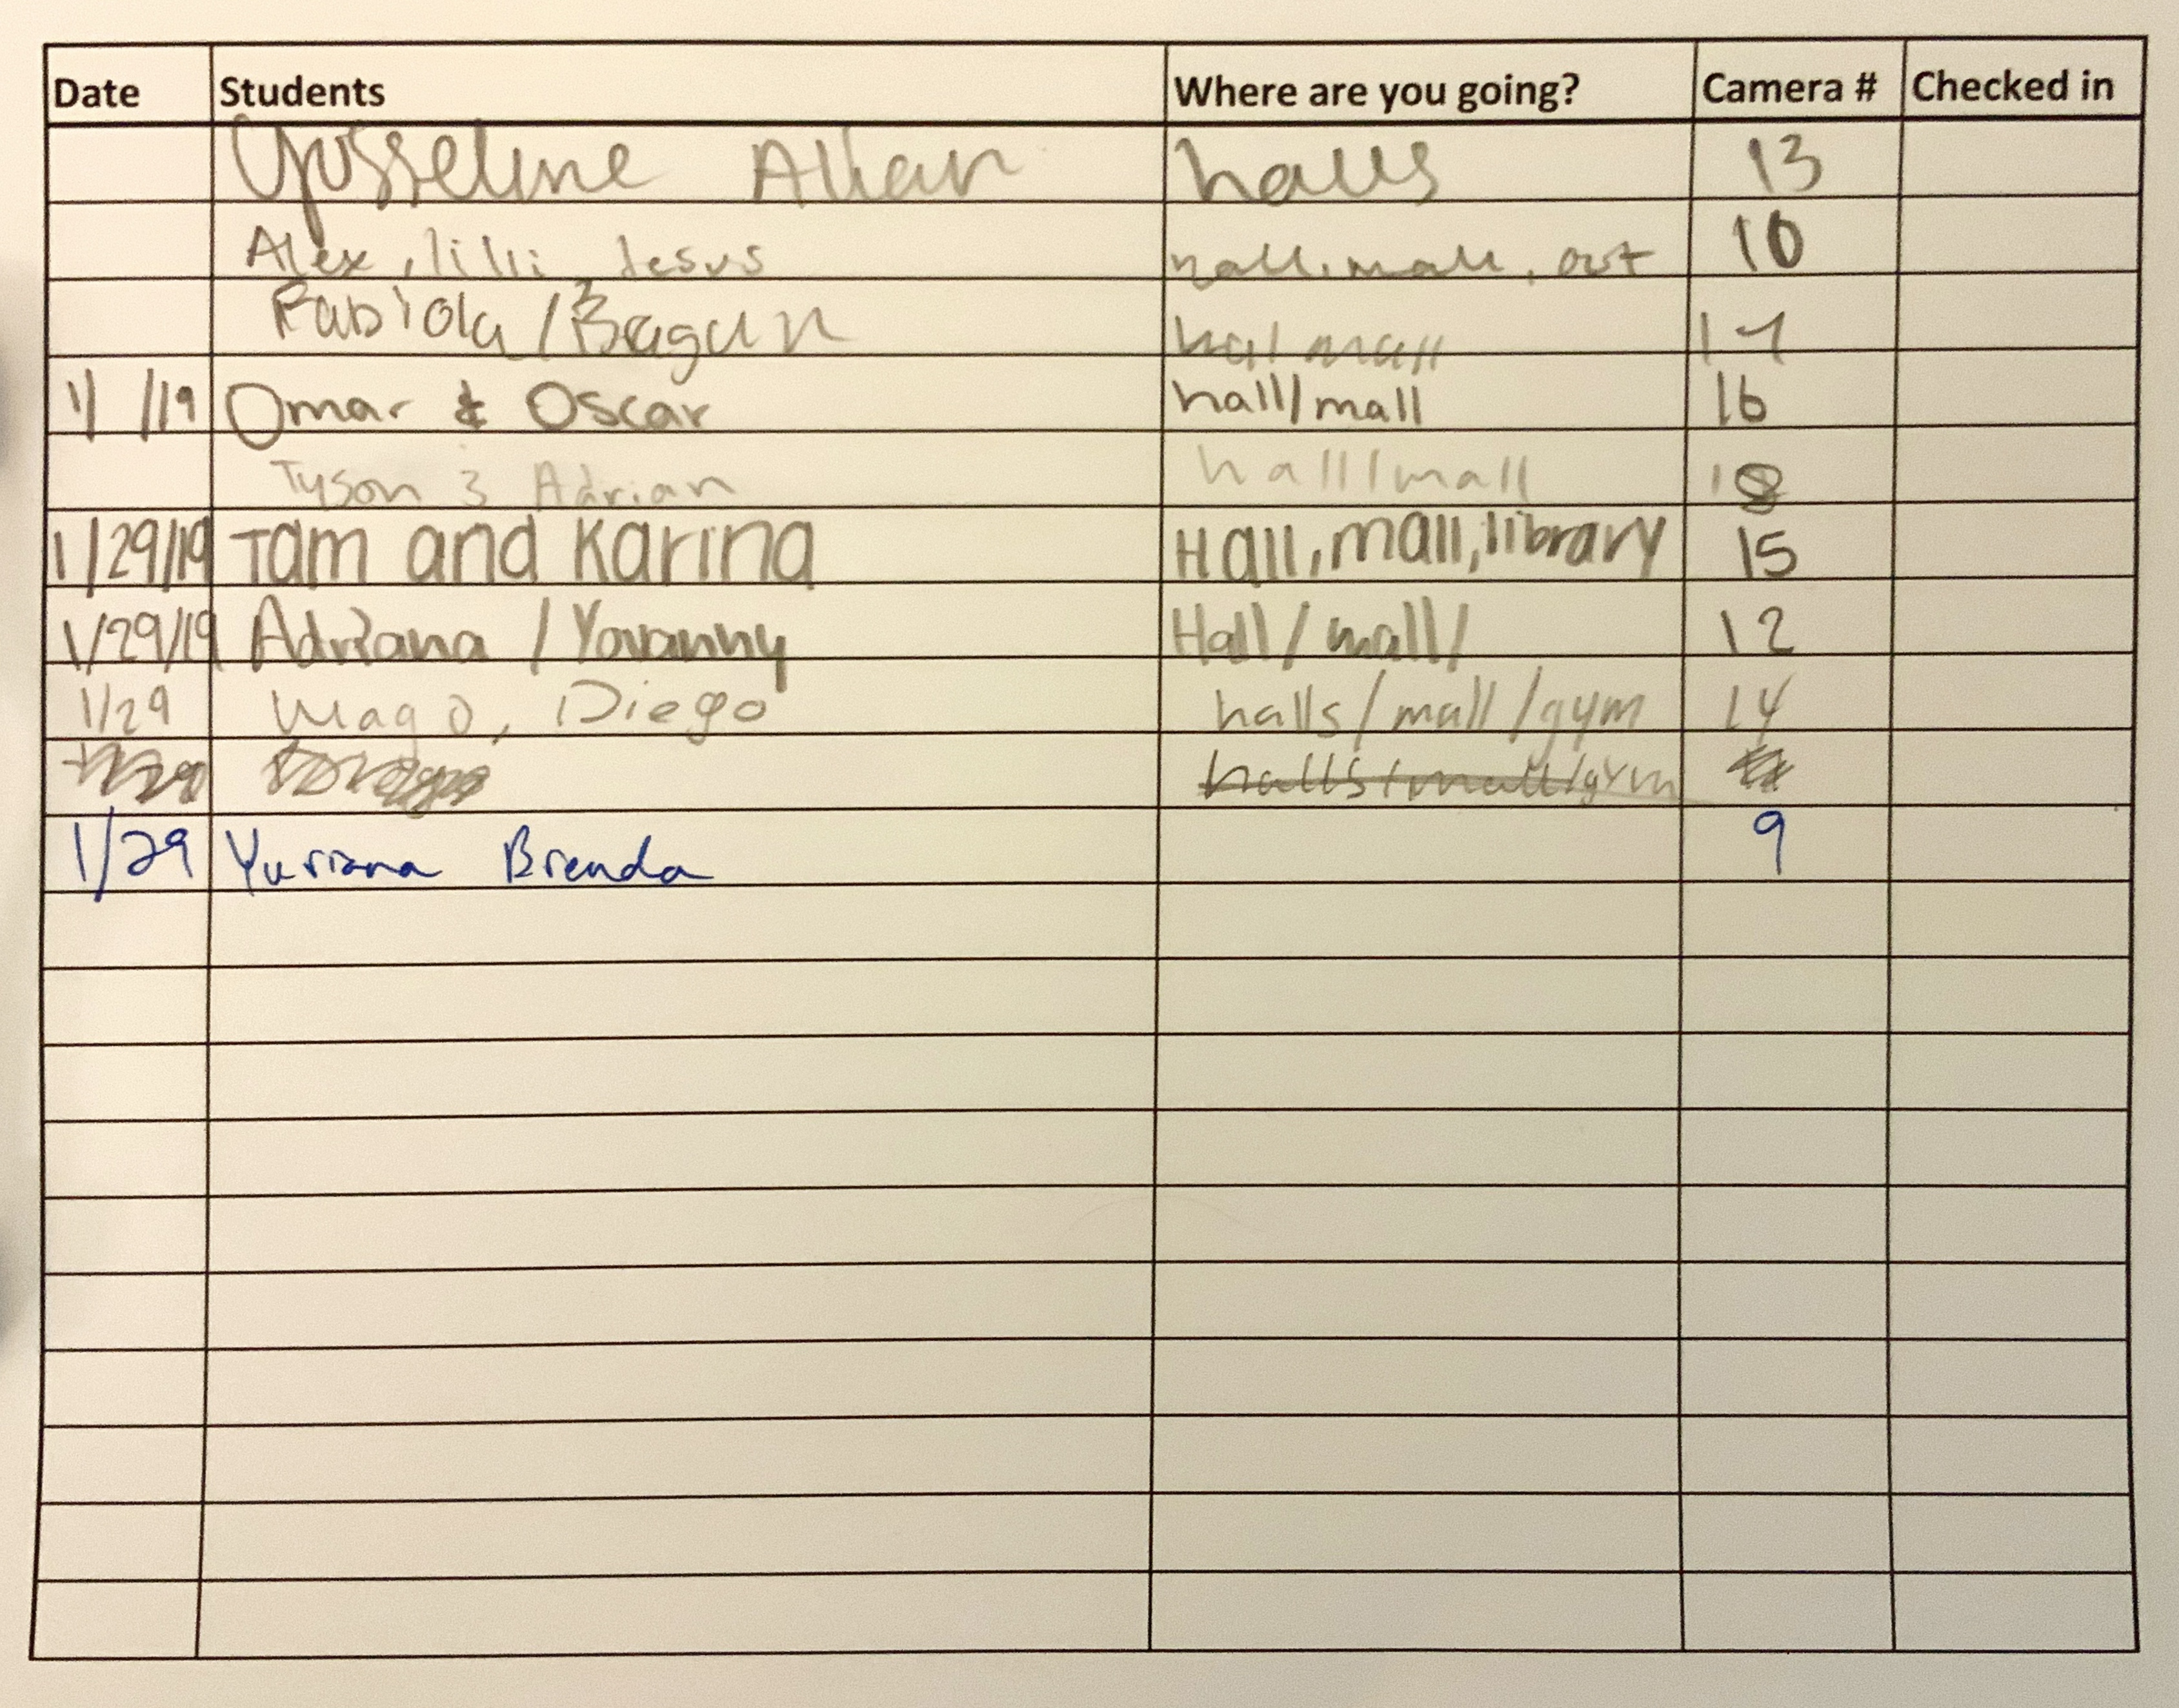 Date Students Where are you going? Camera # Checked in
Yosseline Allan halls 13
Alex, lilli Jesus hall, mall, out 10
Fabiola / hal mall 17
1/ /19 Omar & Oscar hall/mall 16
Tyson 3 Adrian hall/mall 18
1/29/19 Tam and Karina Hall, mall, library 15
1/29/19 Adriana / Yovanny Hall/mall/ 12
1/29 Mago, Diego halls/mall/gym 14
halls/mall/gym
1/29 Yuriana Brenda 9